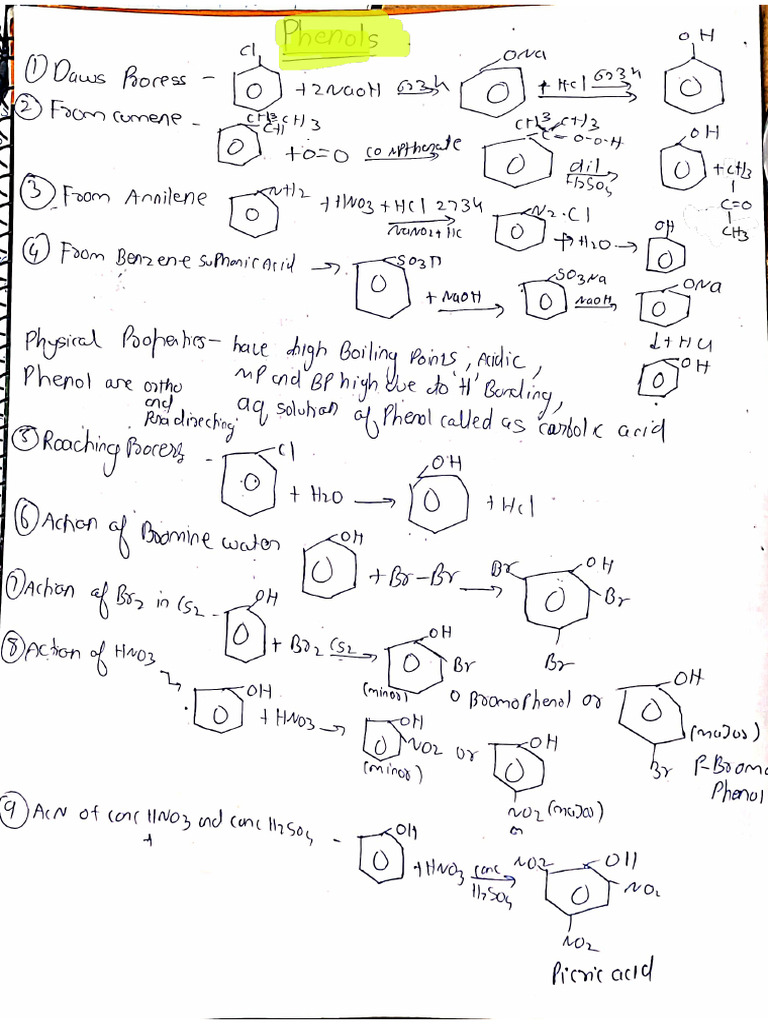 Phenols
① Daws Process - Cl + 2NaOH 623k ONa + HCl 623k OH
② From cumene - CH3 CH3 CH + O=O co npthenate CH3 CH3 C - O-O-H dil H2SO4 OH + CH3 C=O CH3
③ From Annilene NH2 + HNO3 + HCl 273k NaNO2 + HC N2·Cl + H2O → OH
④ From Benzene sulphonic Acid → SO3H + NaOH SO3Na NaOH ONa
↓ + HCl
OH
Physical Properties - have high Boiling Points, Acidic,
Phenol are ortho and Para directing MP and BP high due to 'H' Bonding,
aq solution of Phenol called as carbolic acid
⑤ Roaching Process - Cl + H2O → OH + HCl
⑥ Action of Bromine water OH + Br-Br → Br OH Br Br
⑦ Action of Br2 in CS2 - OH + Br2 CS2 → OH Br (minor) O Bromophenol or OH Br (major) P-Bromo Phenol
⑧ Action of HNO3 → OH + HNO3 → OH NO2 (minor) or OH NO2 (major)
⑨ Acn of conc HNO3 and conc H2SO4 - OH + HNO3 conc H2SO4 → NO2 OH NO2 NO2
Picric acid